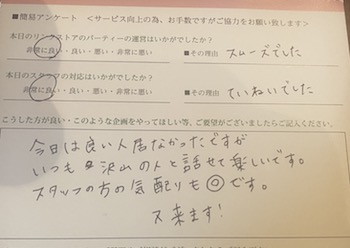 ■簡易アンケート <サービス向上の為、お手数ですがご協力をお願い致します>
本日のリンクストアのパーティーの運営はいかがでしたか?
非常に良い・良い・悪い・非常に悪い ■その理由 スムーズでした
本日のスタッフの対応はいかがでしたか?
非常に良い・良い・悪い・非常に悪い ■その理由 ていねいでした
こうした方が良い・このような企画をやってほしい等、ご要望がございましたらご記入ください。
今日は良い人居なかったですが
いつも沢山の人と話せて楽しいです。
スタッフの方の気配りも◎です。
又来ます!